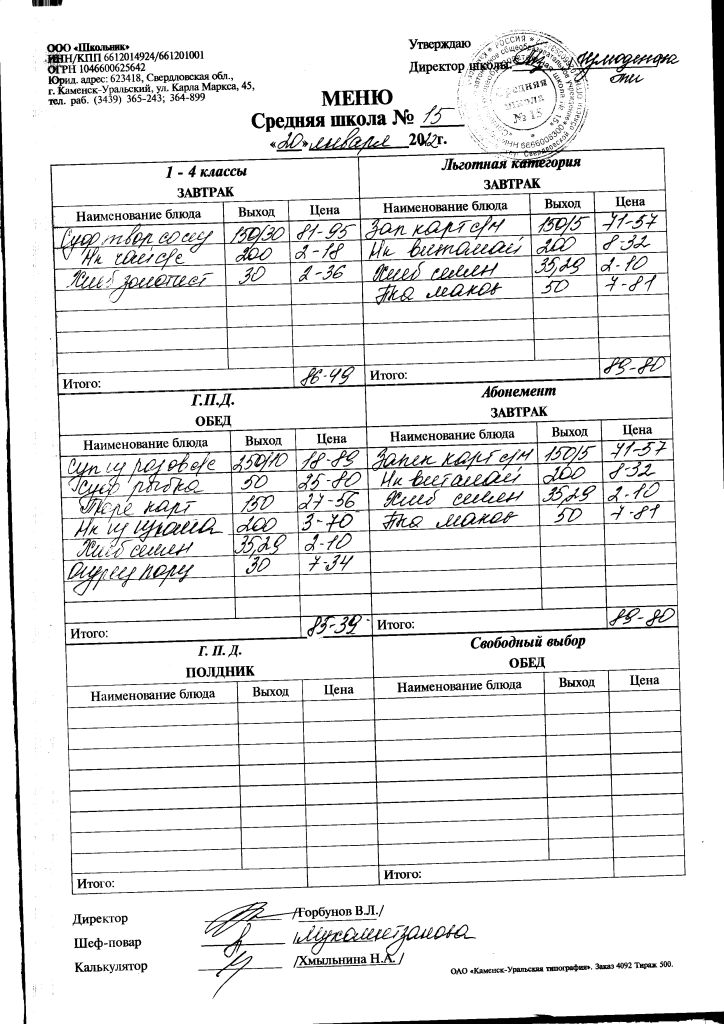 ООО «Школьник»
ИНН/КПП 6612014924/661201001
ОГРН 1046600625642
Юрид. адрес: 623418, Свердловская обл.,
г. Каменск-Уральский, ул. Карла Маркса, 45,
тел. раб. (3439) 365-243; 364-899
Утверждаю
Директор школы
Средняя
школа
№ 15
МЕНЮ
Средняя школа № 15
«20» января 2022г.
1 - 4 классы
ЗАВТРАК
Наименование блюда Выход Цена
Суф твор со сгу 150/30 81-95
Нк чай с/с 200 2-18
Хлеб золотист 30 2-36
Итого: 86-49
Льготная категория
ЗАВТРАК
Наименование блюда Выход Цена
Зап карт с/м 150/5 71-57
Нк витамай 200 8-32
Хлеб семен 35,29 2-10
Пка маков 50 7-81
Итого: 89-80
Г.П.Д.
ОБЕД
Наименование блюда Выход Цена
Суп 250/10 18-89
Суф рыбка 50 25-80
Пюре карт 150 27-56
Нк 200 3-70
Хлеб семен 35,29 2-10
Огурец порц 30 7-34
Итого: 85-39
Абонемент
ЗАВТРАК
Наименование блюда Выход Цена
Запек карт с/м 150/5 71-57
Нк витамай 200 8-32
Хлеб семен 35,29 2-10
Пка маков 50 7-81
Итого: 89-80
Г. П. Д.
ПОЛДНИК
Наименование блюда Выход Цена
Итого:
Свободный выбор
ОБЕД
Наименование блюда Выход Цена
Итого:
Директор /Горбунов В.Л./
Шеф-повар /
Калькулятор /Хмыльнина Н.А. /
ОАО «Каменск-Уральская типография». Заказ 4092 Тираж 500.